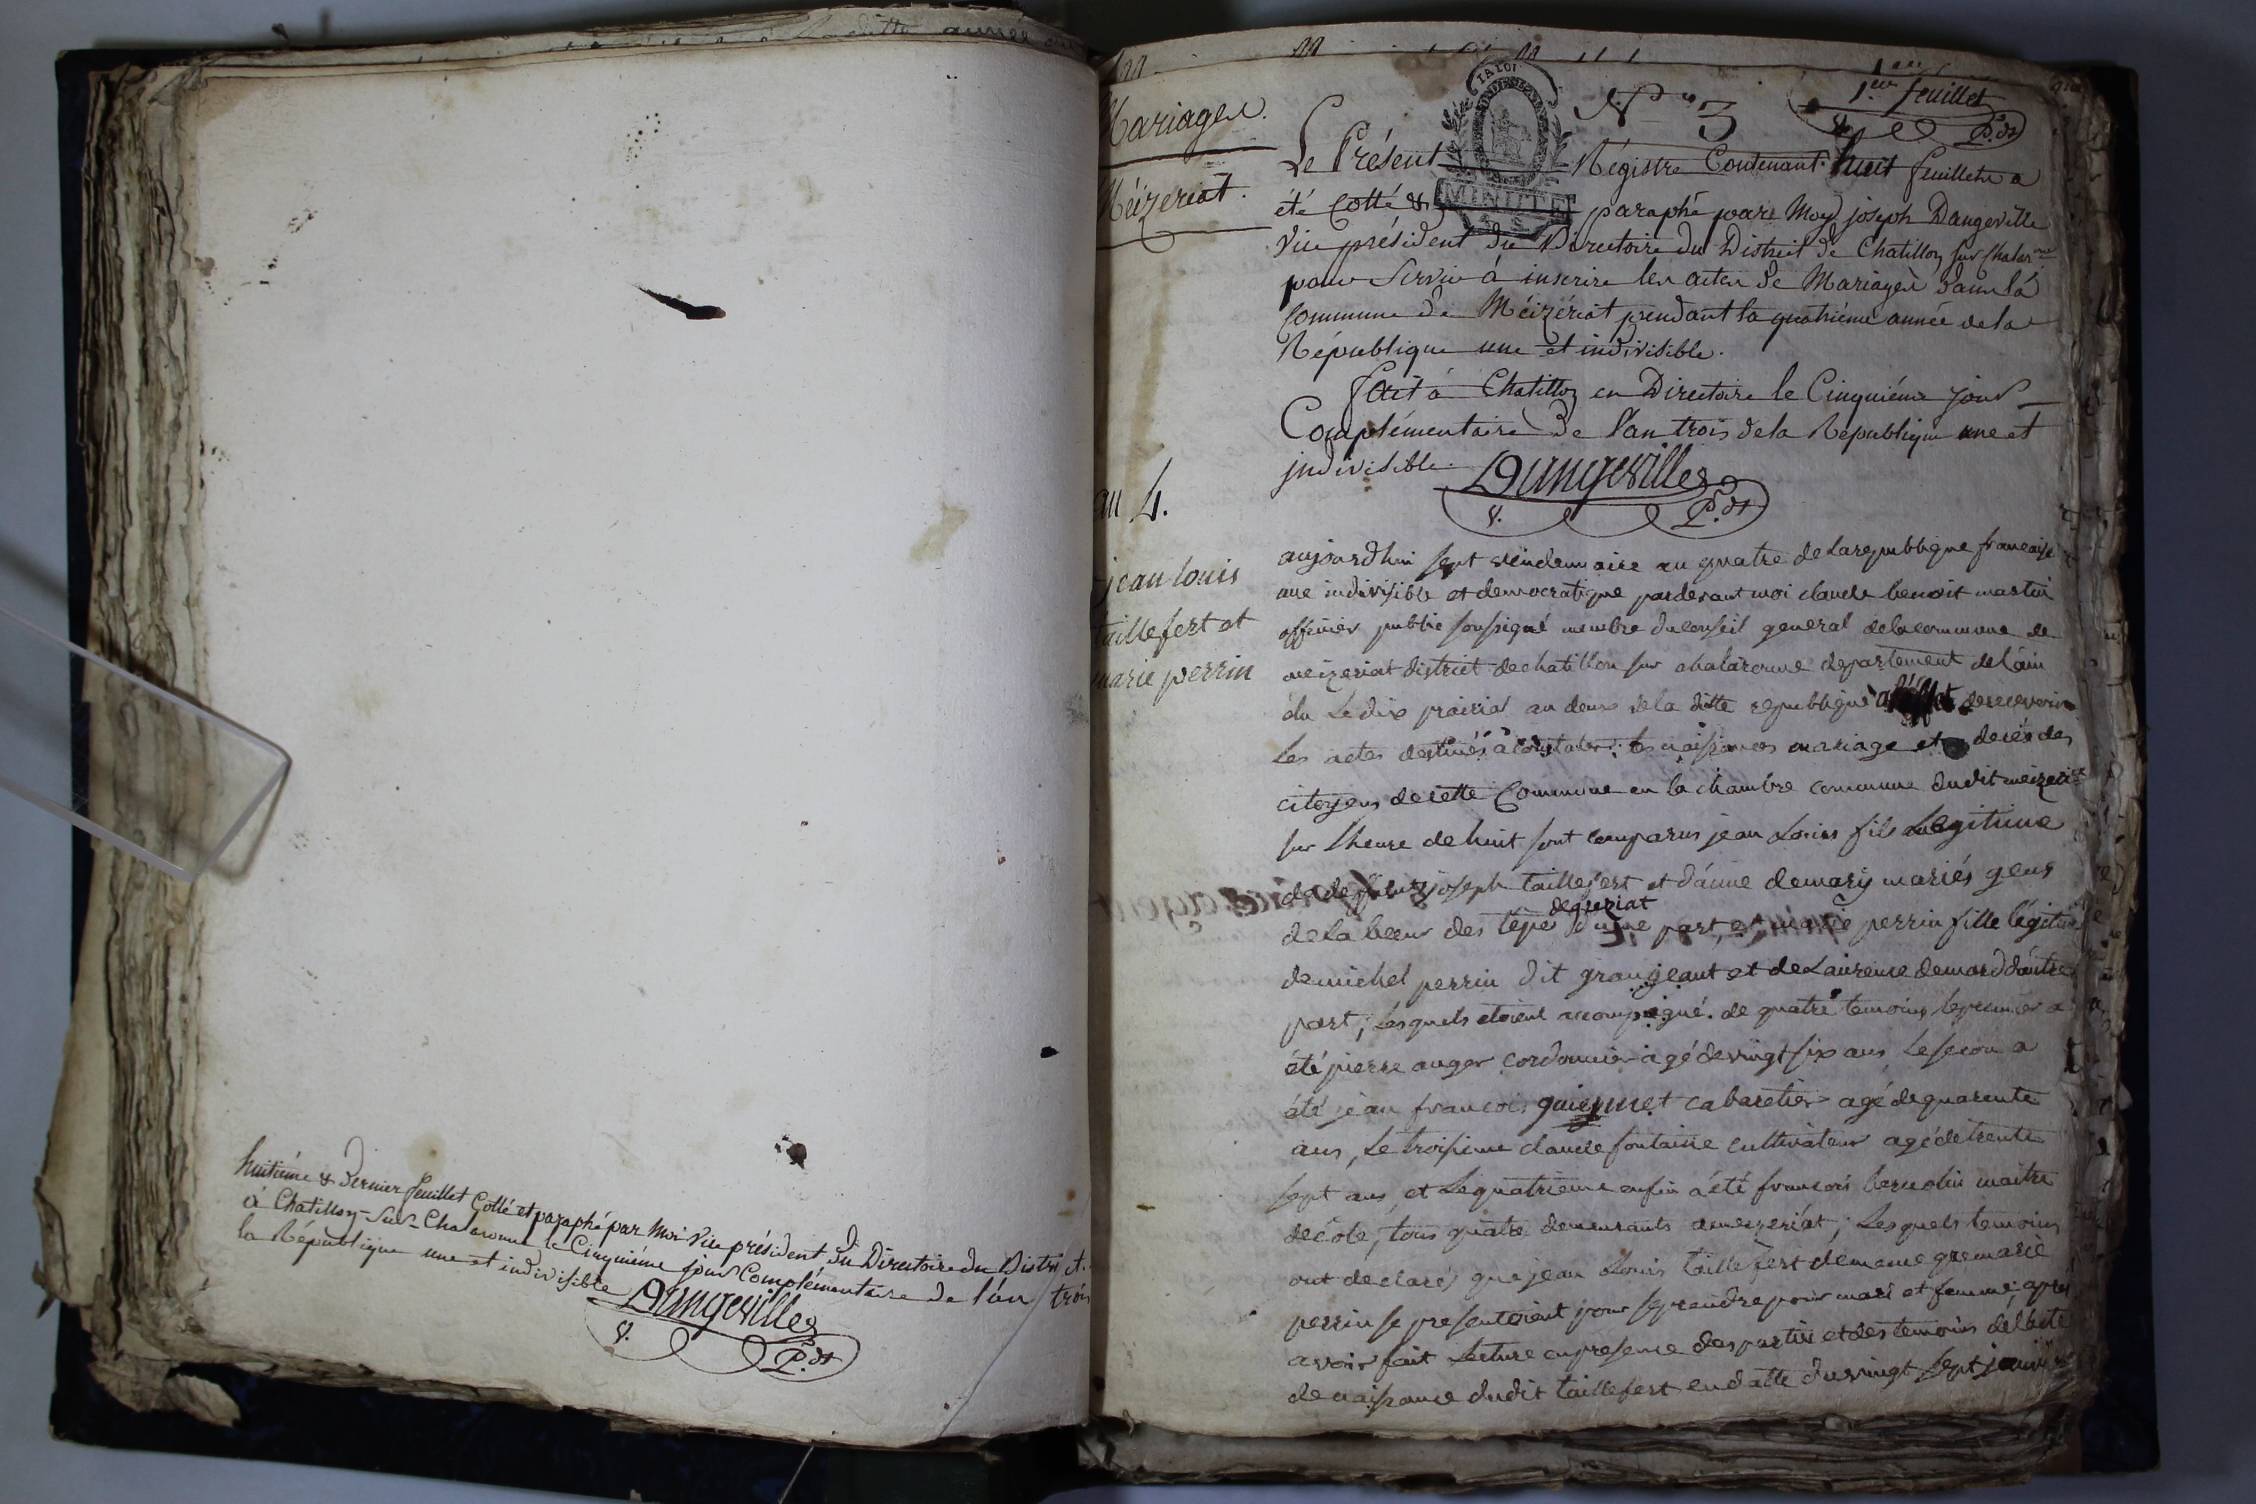 huitiéme & Dernier feuillet Cotté et paraphé par Moi Vice président Du Directoire du District.
à Chatillon-sur-Chalaronne le Cinquiéme jour Complémentaire de l'an trois
la République une et indivisible
Dangeville
V. P.dt
Mariages.
Méizeriat.
an 4.
jean louis
taillefert et
marie perrin
LA LOI
MINUTE
N° 3
1er feuillet
V. P.dt
Le Présent Régistre Contenant huit feuillets a
été Cotté & paraphé par Moy joseph Dangeville
Vice président du Directoire du District de Chatillon sur Chalarne
pour Servir à inscrire les actes de Mariages dans la
Commune de Méizériat pendant la quatriéme année de la
République une et indivisible.
fait à Chatillon en Directoire le Cinquiéme jour
Complémentaire De l'an trois de la République une et
indivisible. Dangeville
V. P.dt
aujourdhui sept vendemiaire an quatre de la republique francaise
une indivisible et democratique pardevant moi claude benoit martin
officier public soussigné membre du conseil general de la commune de
meizeriat district de chatillon sur chalaronne departement de l'ain
élu Le dix prairial an deux de la ditte republique a l'effet de recevoir
Les actes destinés à constater les naissances mariage et decés des
citoyens de cette Commune en la chambre commune dudit meizeriat
sur lheure de huit sont comparus jean Louis fils Legitime
de deffunt joseph taillefert et d'anne demary mariés gens
de la bœur des tépes dequeriat d'une part, et marie perrin fille légitime
de michel perrin dit grangeant et de Laurence demard d'autre
part; Lesquels etoient accompagné. de quatre temoins le premier a
été pierre auger cordonnier agé de vingt six ans, Le secon a
été jean francois guiennet cabaretier agé de quarente
ans, Le troisieme claude fontaine cultivateur agé de trente
sept ans, et Le quatrieme enfin a été francois bernolin maitre
décole, tous quatre demeurants a meizeriat; Lesquels temoins
ont declaré, que jean Louis taillefert de meme que marie
perrin se presentoient pour se prendre pour mari et femme, après
avoir fait Lecture en presence des parties et des temoins de l'acte
de naissance dudit taillefert en datte du vingt sept janvier